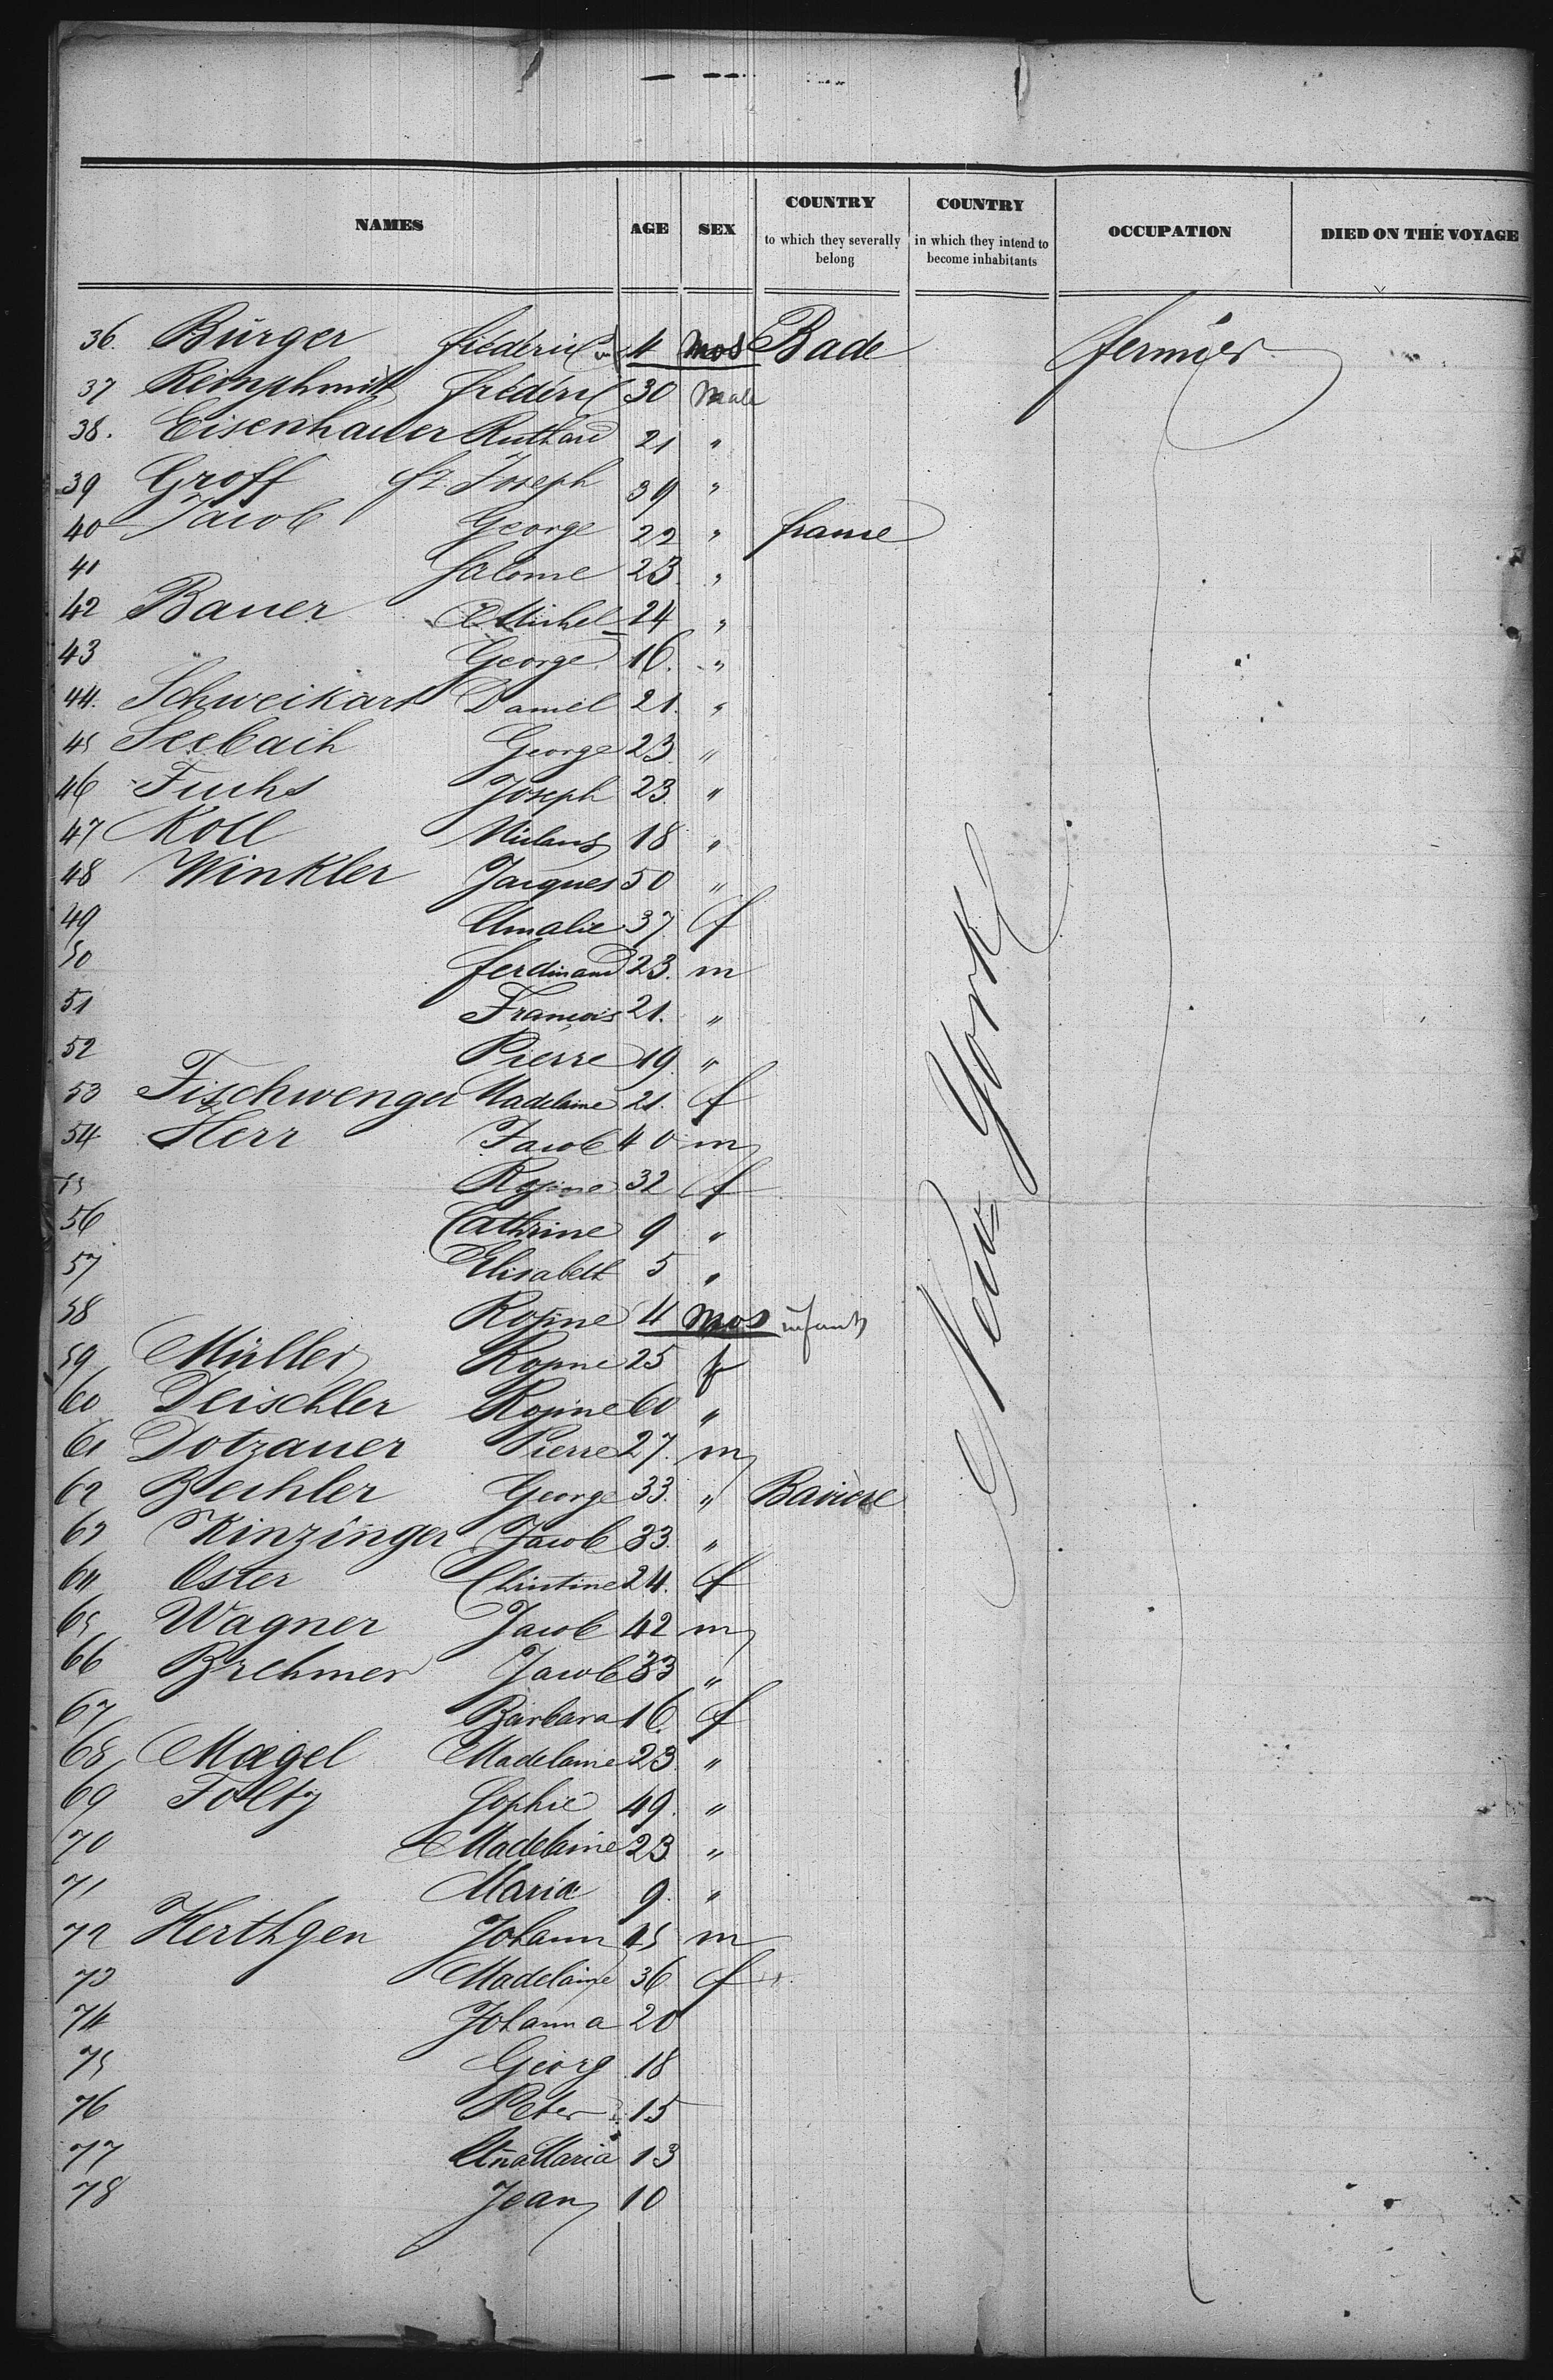 NAMES AGE SEX COUNTRY to which they severally belong COUNTRY in which they intend to become inhabitants OCCUPATION DIED ON THE VOYAGE
36. Bürger fréderic 4 mos Bade fermier
37 frédéric 30 Male
38. Eisenhauer Ruthard 21 "
39 Groff fz. Joseph 39 "
40 Jacob George 22 " france
41 Salome 23. "
42 Bauer Michel 24 "
43 George 16. "
44. Schweikart Daniel 21. "
45 Seebach George 23. "
46 Fuchs Joseph 23. "
47 Koll Niclaus 18 "
48 Winkler Jacques 50 "
49 Amalie 37 f
50 ferdinand 23. m
51 François 21. "
52 Pierre 19. "
53 Fischwenger Madelaine 21. f
54 Herr Jacob 40 m
55 Rosine 32 f
56 Cathrine 9 "
57 Elisabeth 5 "
58 Rosine 4 mos infants
59 Müller Rosine 25 f
60 Deischler Rosine 60 "
61 Dotzauer Pierre 27. m
62 Bechler George 33. " Baviere
63 Kinzinger Jacob 33. "
64 Oster Christine 24. f
65 Wagner Jacob 42 m
66 Brehmer Jacob 33 "
67 Barbara 16. f
68 Magel Madelaine 23. "
69 Foltz Sophie 49. "
70 Madelaine 23 "
71 Maria 9. "
72 Herthgen Johann 45 m
73 Madelaine 36 f
74 Johanna 20
75 Georg 18
76 Peter 15
77 Añа Maria 13
78 Jean 10
New York